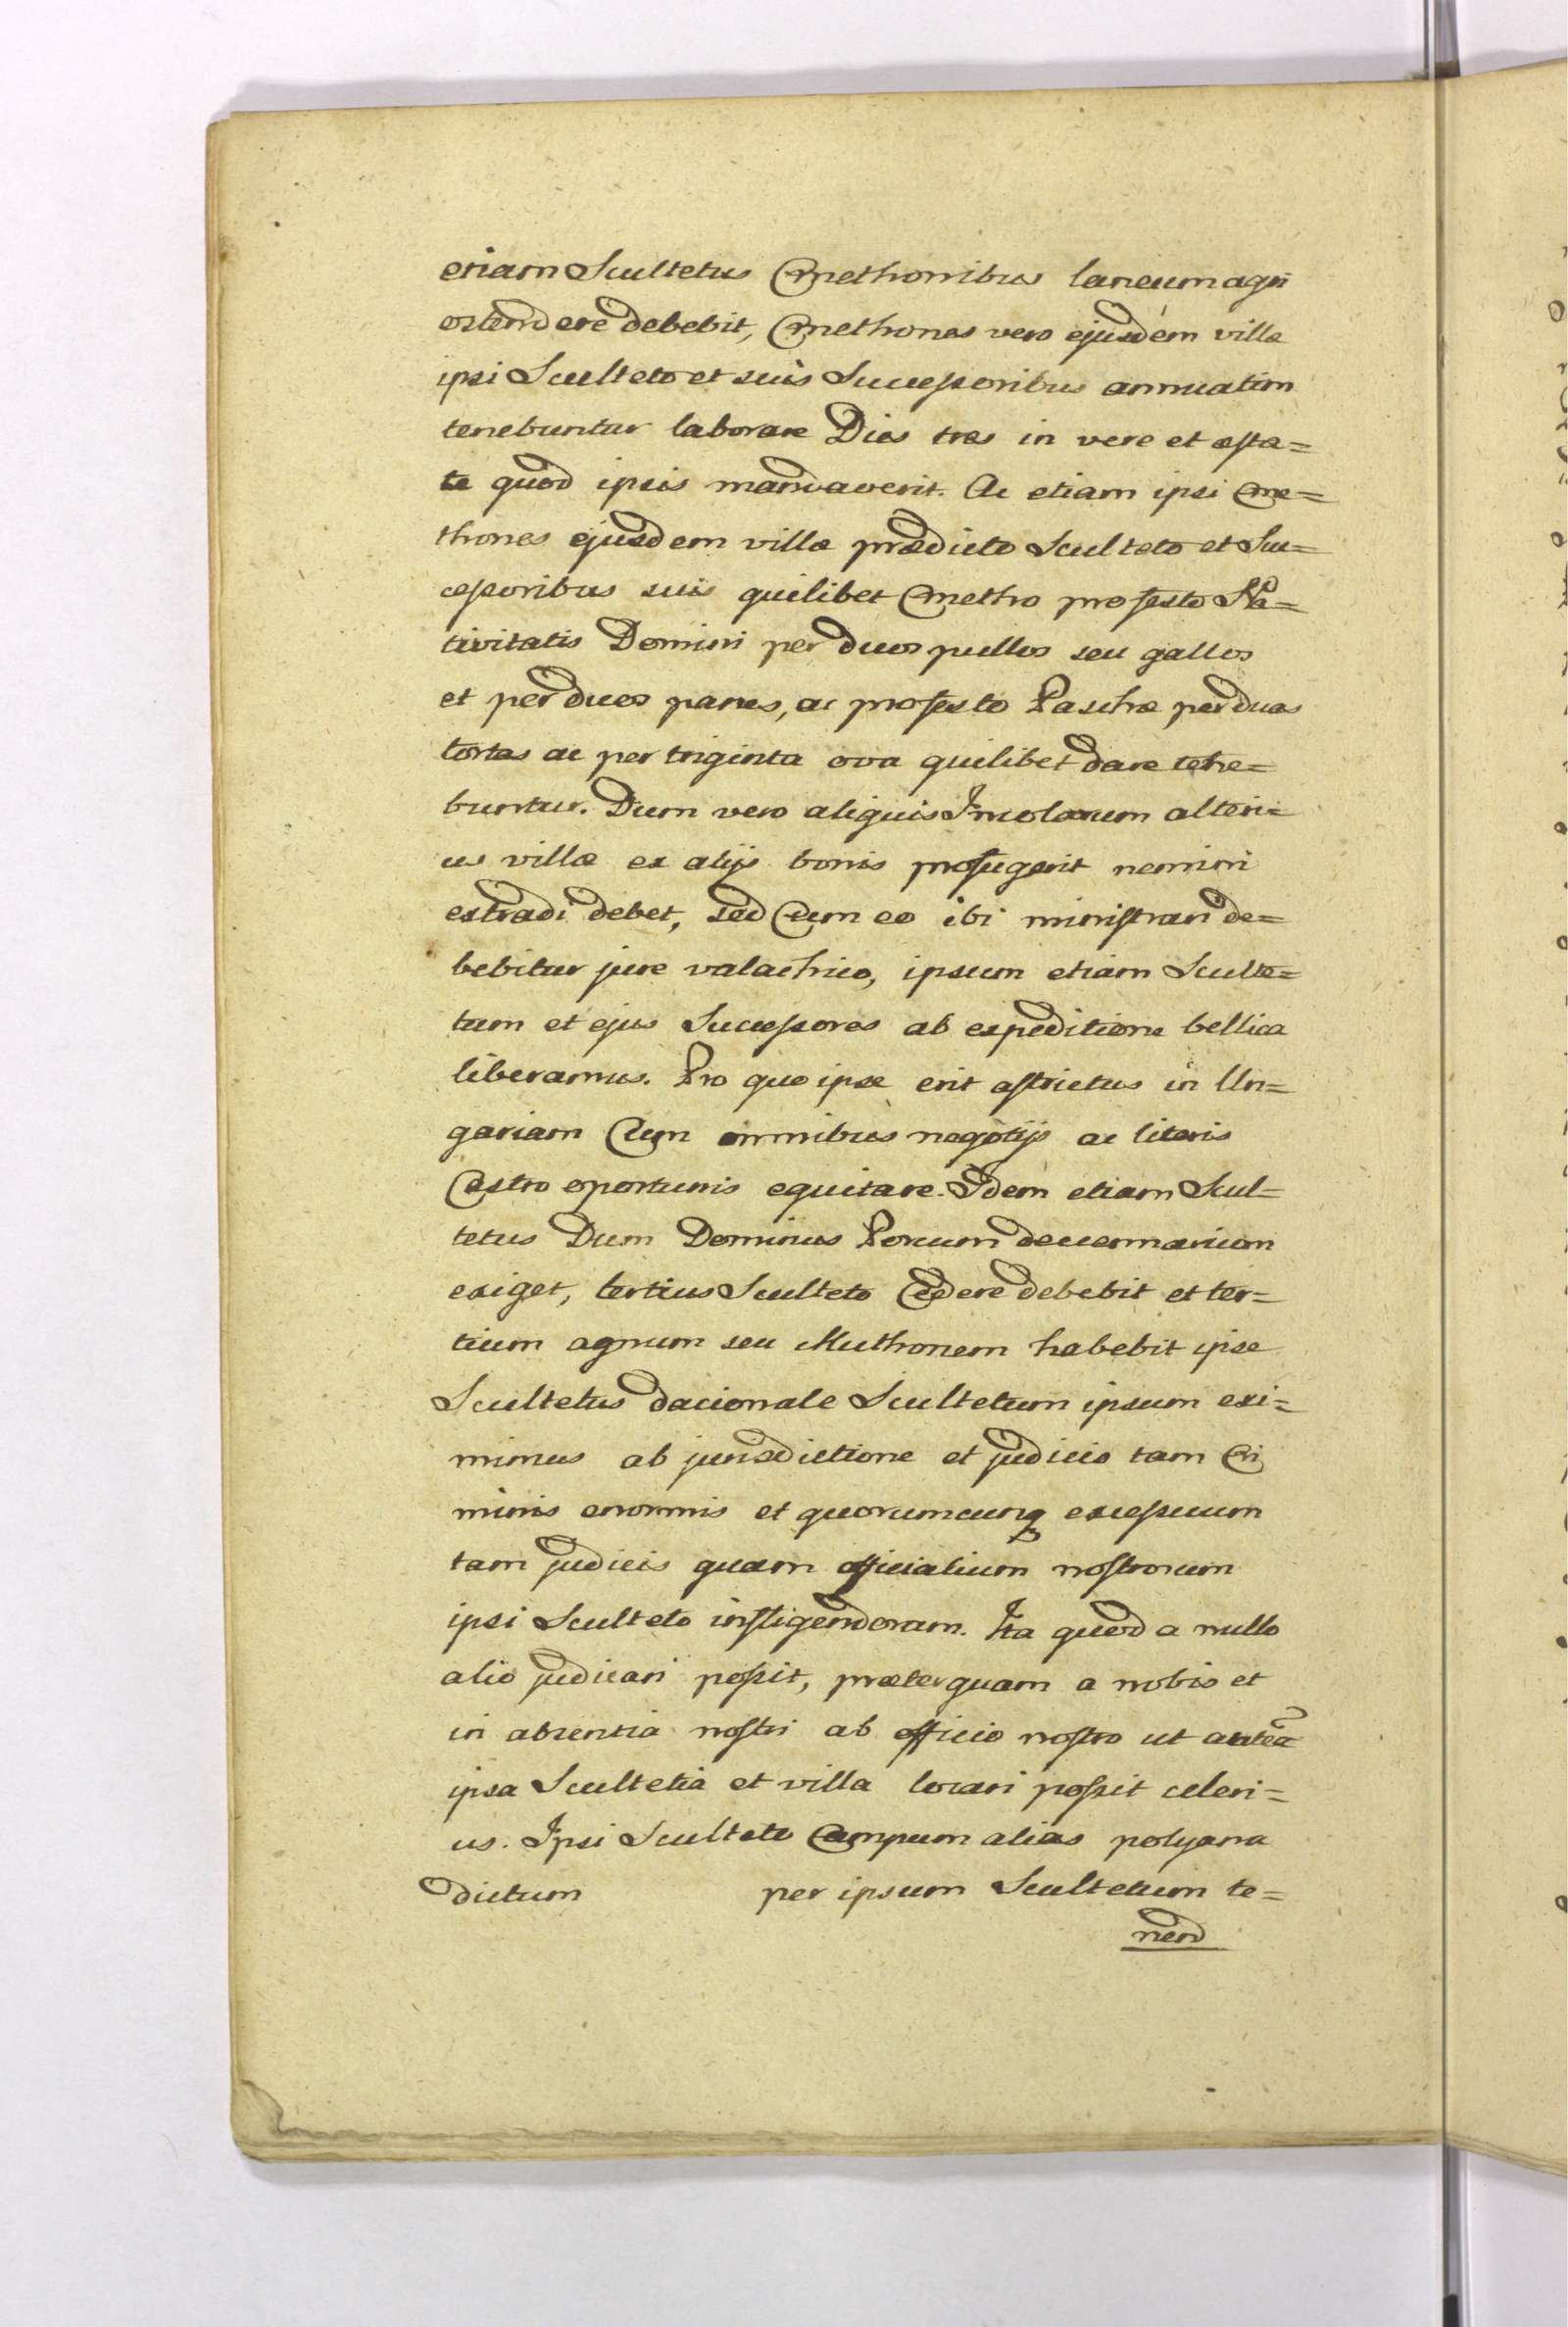 etiam Scultetus Cmethonibus laneum agri
ostendere debebit, Cmethones vero ejusdem villæ
ipsi Sculteto et suis Successoribus annuatim
tenebuntur laborare Dies tres in vere et æsta=
te quod ipsis mandaverit. Ac etiam ipsi Cme=
thones ejusdem villæ prædicto Sculteto et Suc=
cessoribus suis quilibet Cmetho pro festo Na=
tivitatis Domini per duos pullos seu gallos
et per duos panes, ac pro festo Paschæ per duas
tortas ac per triginta ova quilibet dare tene=
buntur. Dum vero aliquis Incolarum alteri=
us villæ ex alijs bonis profugerit nemini
extradi debet, sed Cum eo ibi ministrari de=
bebitur jure valachico, ipsum etiam Sculte=
tum et ejus Successores ab expeditione bellica
liberamus. Pro quo ipse erit astrictus in Un=
gariam Cum omnibus negotijs ac literis
Castro oportunis equitare. Idem etiam Scul=
tetus Dum Dominus Porcum decennarium
exiget, tertius Sculteto Cedere debebit et ter=
tium agnum seu Muthonem habebit ipse
Scultetus dacionale Scultetum ipsum exi=
mimus ab jurisdictione et judicio tam Cri
minis enormis et quorumcunq excessuum
tam judicis quam officialium nostrorum
ipsi Sculteto infligendoram. Ita quod a nullo
alio judicari possit, præterquam a nobis et
in absentia nostri ab officio nostro ut antea
ipsa Scultetia et villa locari possit celeri=
us. Ipsi Sculteto Campum alias polyana
dictum per ipsum Scultetum te=
nend